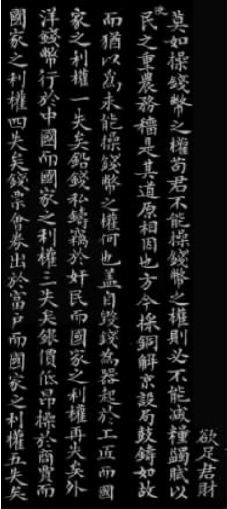 欲足君財
莫如操錢幣之權苟君不能操錢幣之權則必不能減糧蠲賦以
民之重農務穡是其道原相因也方今採銅解京設局鼓鑄如故
而猶以為未能操錢幣之權何也蓋自毀錢為器起於工匠而國
家之利權一失矣鉛錢私鑄竊於奸民而國家之利權再失矣外
洋錢幣行於中國而國家之利權三失矣銀價低昂操於商賈而
國家之利權四失矣錢票會劵出於富戶而國家之利權五失矣